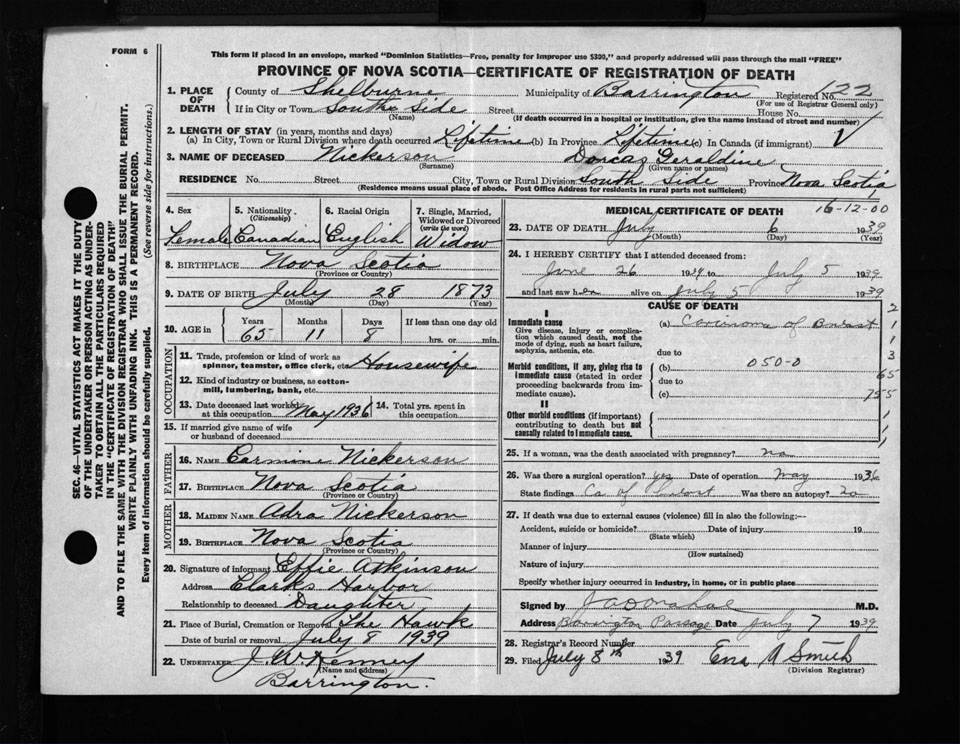 FORM 6
This form if placed in an envelope, marked "Dominion Statistics—Free, penalty for improper use $300," and properly addressed will pass through the mail "FREE"
PROVINCE OF NOVA SCOTIA—CERTIFICATE OF REGISTRATION OF DEATH
1. PLACE OF DEATH County of Shelburne Municipality of Barrington Registered No. 122
(For use of Registrar General only)
If in City or Town South Side Street House No.
(Name) (If death occurred in a hospital or institution, give the name instead of street and number)
2. LENGTH OF STAY (in years, months and days)
(a) In City, Town or Rural Division where death occurred Lifetime (b) In Province Lifetime (c) In Canada (if immigrant)
3. NAME OF DECEASED Nickerson Dorcas Geraldine
(Surname) (Given name or names)
RESIDENCE No. Street City, Town or Rural Division South Side Province Nova Scotia
(Residence means usual place of abode. Post Office Address for residents in rural parts not sufficient)
4. Sex Female
5. Nationality (Citizenship) Canadian
6. Racial Origin English
7. Single, Married, Widowed or Divorced (write the word) Widow
8. BIRTHPLACE Nova Scotia
(Province or Country)
9. DATE OF BIRTH July 28 1873
(Month) (Day) (Year)
10. AGE in Years Months Days If less than one day old
65 11 8 hrs. or min.
OCCUPATION
11. Trade, profession or kind of work as spinner, teamster, office clerk, etc. Housewife
12. Kind of industry or business, as cotton-mill, lumbering, bank, etc.
13. Date deceased last worked at this occupation May 1936
14. Total yrs. spent in this occupation
15. If married give name of wife or husband of deceased
FATHER
16. NAME Carmine Nickerson
17. BIRTHPLACE Nova Scotia
(Province or Country)
MOTHER
18. MAIDEN NAME Adra Nickerson
19. BIRTHPLACE Nova Scotia
(Province or Country)
20. Signature of informant Effie Atkinson
Address Clarks Harbor
Relationship to deceased Daughter
21. Place of Burial, Cremation or Removal The Hawk
Date of burial or removal July 8 1939
22. UNDERTAKER J. W. Kenney
(Name and address)
Barrington.
MEDICAL CERTIFICATE OF DEATH 16-12-00
23. DATE OF DEATH July 6 1939
(Month) (Day) (Year)
24. I HEREBY CERTIFY that I attended deceased from:
June 26 1939 to July 5 1939
and last saw her alive on July 5 1939
CAUSE OF DEATH
I
Immediate cause (a) Carcinoma of Breast
Give disease, injury or complication which caused death, not the mode of dying, such as heart failure, asphyxia, asthenia, etc.
due to
Morbid conditions, if any, giving rise to immediate cause (stated in order proceeding backwards from immediate cause). (b) 050-0
due to
(c)
II
Other morbid conditions (if important) contributing to death but not causally related to immediate cause.
2
1
1
3
65
755
25. If a woman, was the death associated with pregnancy? no
26. Was there a surgical operation? yes Date of operation May 1936
State findings Ca of Breast Was there an autopsy? no
27. If death was due to external causes (violence) fill in also the following:—
Accident, suicide or homicide? Date of injury 19
(State which)
Manner of injury
(How sustained)
Nature of injury
Specify whether injury occurred in industry, in home, or in public place
Signed by J A Donahoe M.D.
Address Barrington Passage Date July 7 1939
28. Registrar's Record Number
29. Filed July 8th 1939 Ena A Smith
(Division Registrar)
SEC. 46—VITAL STATISTICS ACT MAKES IT THE DUTY
OF THE UNDERTAKER OR PERSON ACTING AS UNDERTAKER
TO OBTAIN ALL THE PARTICULARS REQUIRED
IN THE "CERTIFICATE OF REGISTRATION OF DEATH"
AND TO FILE THE SAME WITH THE DIVISION REGISTRAR WHO SHALL ISSUE THE BURIAL PERMIT.
WRITE PLAINLY WITH UNFADING INK. THIS IS A PERMANENT RECORD.
Every item of information should be carefully supplied. (See reverse side for instructions.)